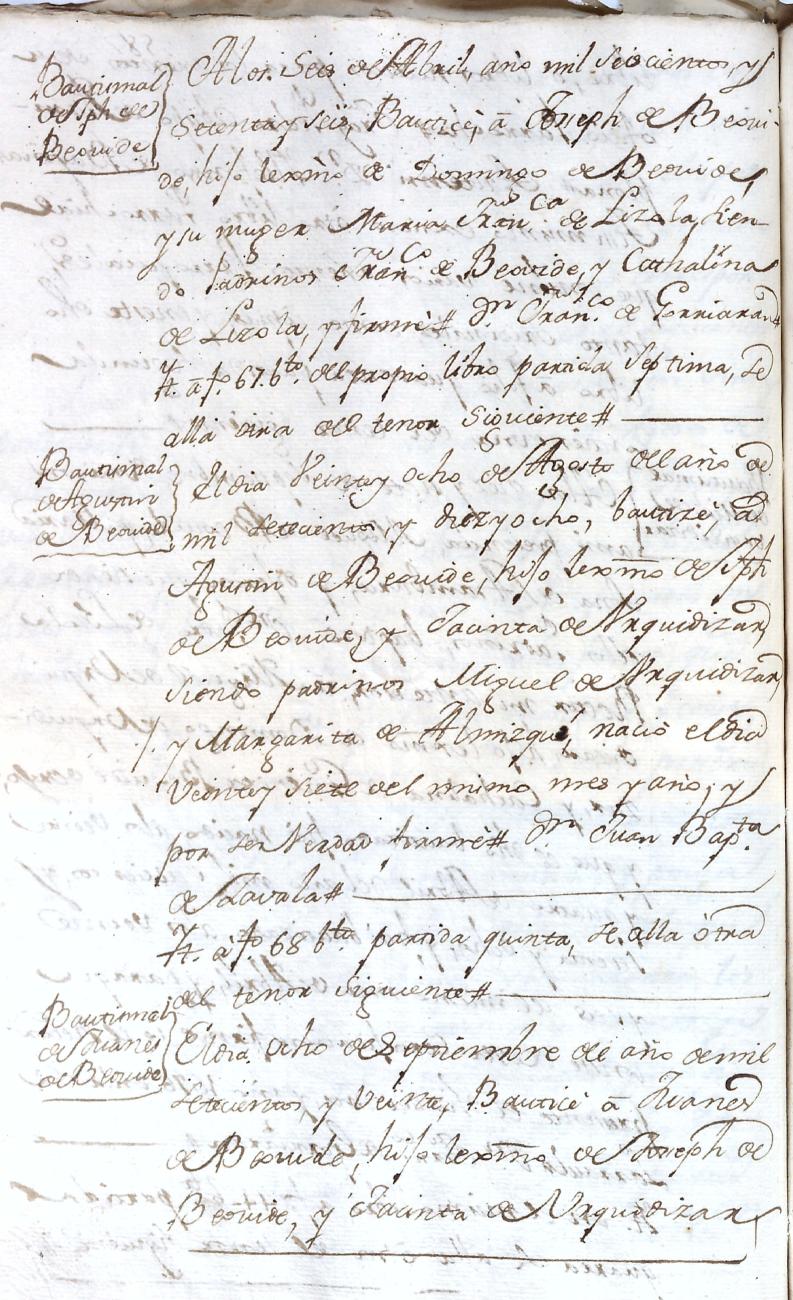 Bautismal
de Jph de
Beovide
A los seis de Abril, año mil seiscientos, y
Setenta y seis, Bauticè, à Joseph de Beovi-
de, hijo lexmo de Domingo de Beovide,
y su muger Maria Franca de Lizola, sien-
do padrinos Franco de Beovide, y Cathalina
de Lizola, y firmè# Dn Franco de Gorriaran#
Yt. à fo. 67. bto. del propio libro partida septima, se
alla otra del tenor siguiente#
Bautismal
de Agustin
de Beovide
El dia Veinte y ocho de Agosto del año de
mil setecientos, y diez y ocho, bautizè, à
Agustin de Beovide, hijo lexmo de Jph
de Beovide, y Jacinta de Vrquidizar,
siendo padrinos Miguel de Vrquidizar,
y Margarita de Almizque, naciò el dia
Veinte y siete del mismo mes y año, y
por ser Verdad firmè# Dn Juan Bapta
de Zavala#
Yt. à fo. 68 bto partida quinta, se alla òtra
del tenor siguiente#
Bautismal
de Juanes
de Beovide
El dia ocho de Septiembre de año de mil
setecientos, y Veinte, Bauticè à Juanes
de Beovide, hijo lexmo de Joseph de
Beovide, y Jacinta de Vrquidizar